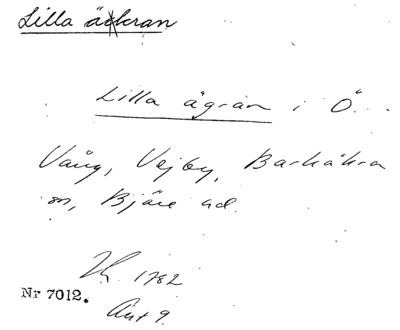 Lilla äkran
Lilla ägran i Ö.
Vång, Vejby, Barkåkra
sn, Bjäre hd.
1782
Nr 7012.
Akt 9.